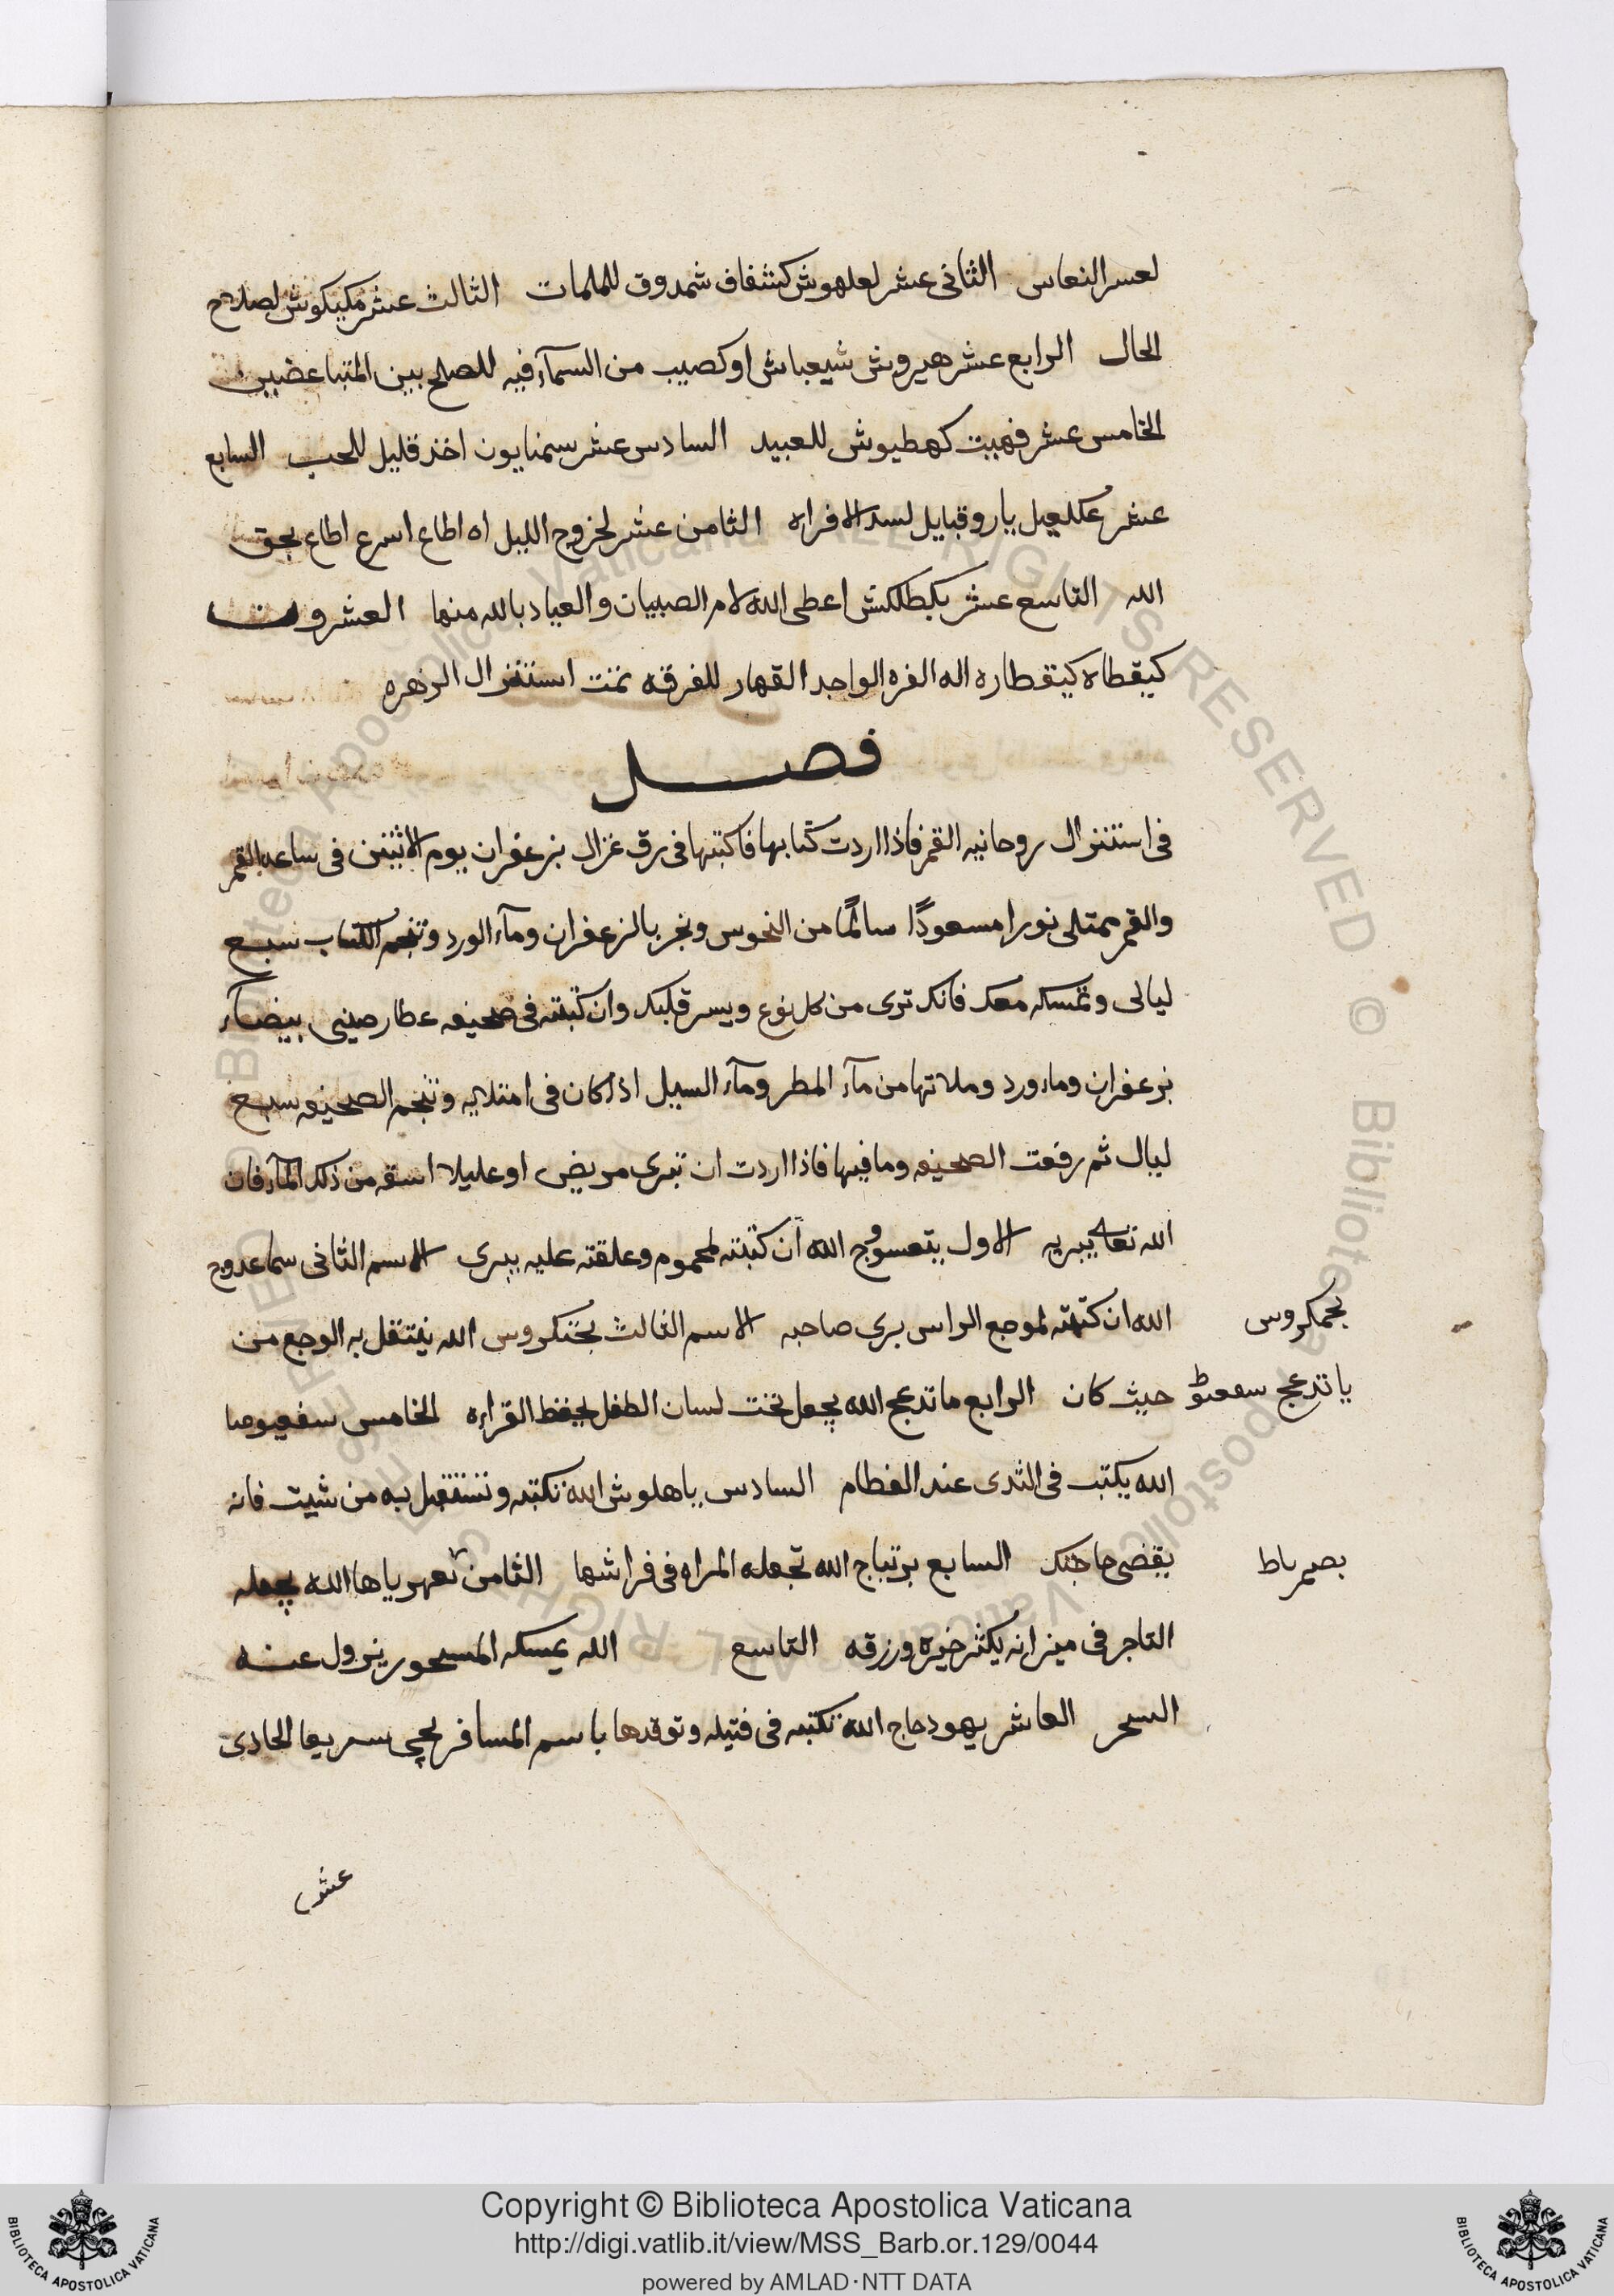 لعسر النعاس الثانى عشر لعلهوش كشفاف شمدوق للملمات الثالث عشر مكيكوش لصلاح
الحال الرابع عشر هيروش شيعباش اوكصيب من السمآء فيه للصلح بين المتباعضين
الخامس عشر فهبت كهطيوش للعبيد السادس عشر سمنايون اخذ قليل للحب السابع
عشر عكلعيل ياروقبايل لسد الافراه الثامن عشر لخروج الليل اه اطاع اسرع اطاع بحق
الله التاسع عشر بكطلكش اعطى الله لام الصبيان والعياد بالله منها العشرون
كيقطاه كيقطاره اله الفره الواجد القهار للفرقه تمت استنزال الزهره
فصل
فى استنزال روحانيه القمر فاذا اردت كتابها فاكتبها فى رق غزال بزعفران يوم الاثنين فى ساعه القمر
والقمر ممتلى نورا مسعودًا سالمًا من النحوس وبخر بالزعفران ومآء الورد وتنجم الكتاب سبع
ليالى وتمسكه معك فانك ترى من كل نوع ويسر قلبك وان كتبته فى صحيفه عطار صينى بيضآء
بزعفران وماء ورد وملاتها من مآء المطر ومآء السيل اذا كان فى امتلايه وتنجم الصحيفه سبع
ليال ثم رفعت الصحيفه وما فيها فاذا اردت ان تبرى مريض او عليلا اسقه من ذلك المآء فان
الله تعالى يبريه الاول يتعسووج الله ان كتبته لمحموم وعلقته عليه يبرى الاسم الثانى سماعدوج
الله ان كتبته لموجع الراس برى صاحبه الاسم الثالث بختكروس الله ينتقل به الوجع من
بحمكروس
حيث كان الرابع ماتدعج الله يجعل تحت لسان الطفل يحفظ القراءه الخامس سفعيوصا
ياتدعج سععو
الله يكتب فى الثدى عند الفطام السادس ياهلوش الله تكتبه وتستقبل به من شيت فانه
يقضى حاجتك السابع برتياج الله تجعله المراه فى فراشها الثامن تعهر ياها الله يجعله
بصمرباط
التاجر فى ميزانه يكثر خيره ورزقه التاسع الله يمسكه المسحور يزول عنه
السحر العاشر يهودحاج الله تكتبه فى فتيله وتوقدها باسم المسافر يجى سريعا الحادى
عشر
Copyright © Biblioteca Apostolica Vaticana
http://digi.vatlib.it/view/MSS_Barb.or.129/0044
powered by AMLAD·NTT DATA